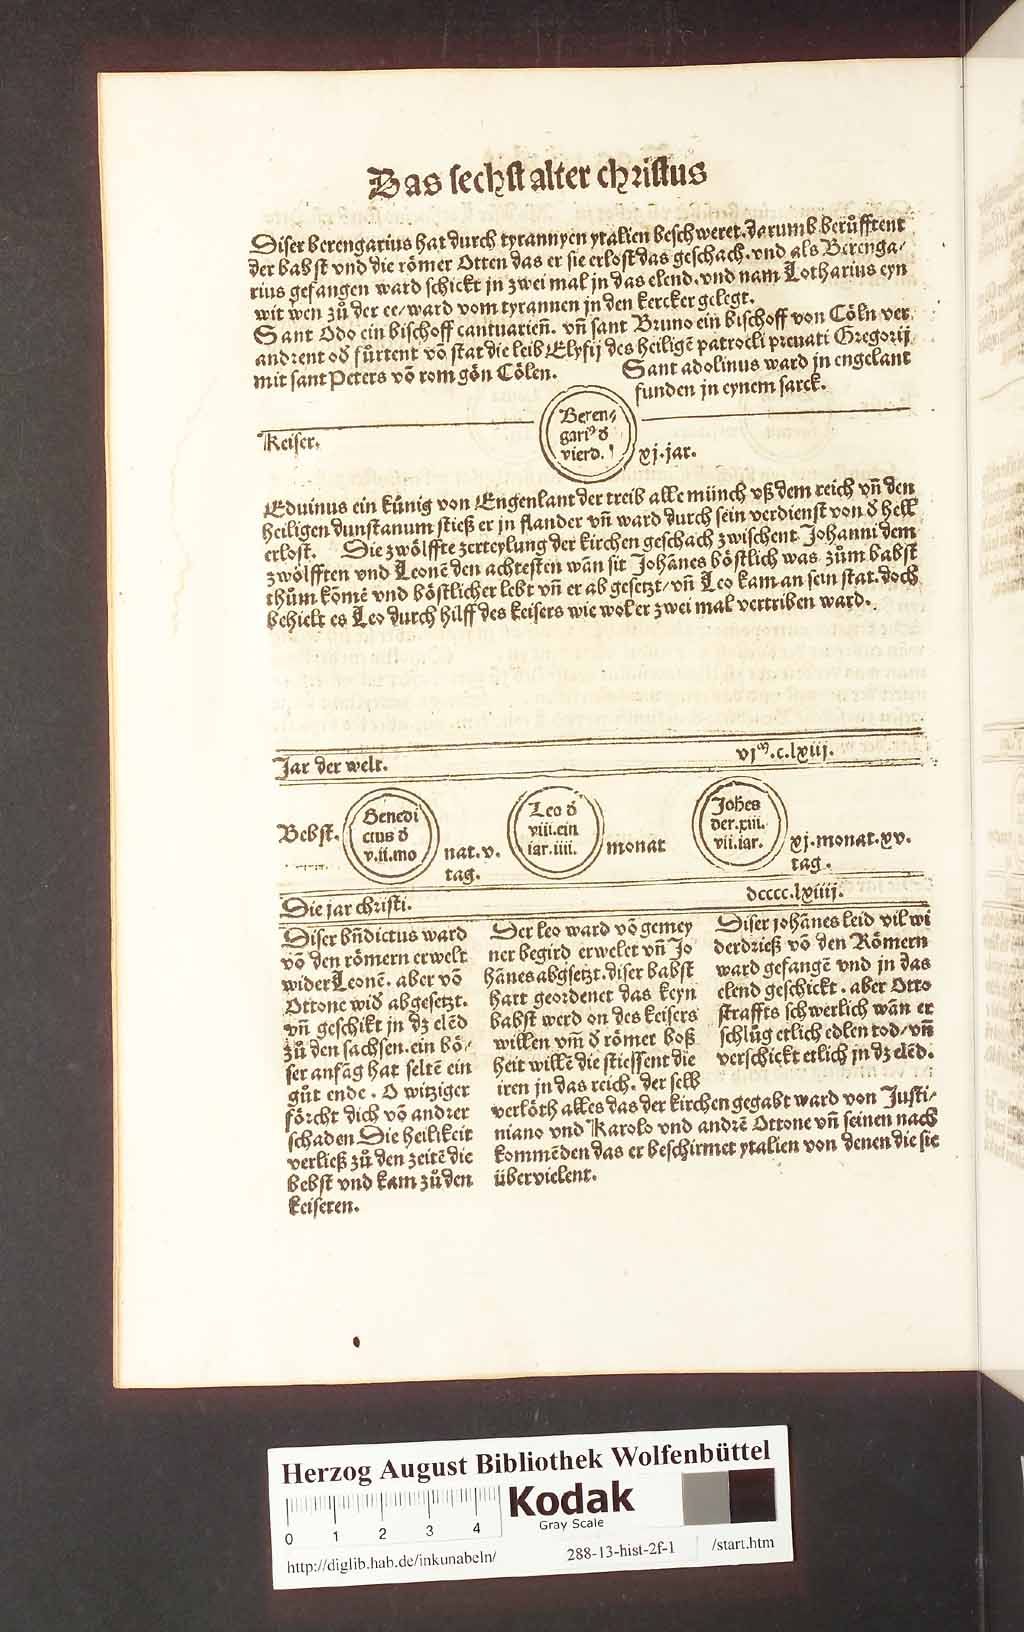 Das sechst alter christus
Diser berengarius hat durch tyrannyen ytalien beschweret. darumb berůfftent
der babst vnd die römer Otten das er sie erlost das geschach. vnd als Berenga/
rius gefangen ward schickt jn zwei mal jn das elend. vnd nam Lotharius eyn
wit wen zů der ee/ ward vom tyrannen jn den kercker gelegt.
Sant Odo ein bischoff cantuarien̄. vn̄ sant Bruno ein bischoff von Cöln ver.
andrent od fůrtent vō stat die leib Elysij des heiligē patrocli preuati Gregorij
mit sant Peters vō rom gön Cölen. Sant adolinus ward jn engelant
funden jn eynem sarck.
Keiser.
Beren/
gariꝰ d
vierd.
xj. jar.
Eduinus ein kůnig von Engenlant der treib alle münch vß dem reich vn̄ den
heiligen dunstanum stieß er jn flander vn̄ ward durch sein verdienst von d hell
erlost. Die zwölffte zerteylung der kirchen geschach zwischent Johanni dem
zwölfften vnd Leonē den achtesten wān sit Johānes böstlich was zům babst
thům komē vnd böstlicher lebt vn̄ er ab gesetzt/ vn̄ Leo kam an sein stat. doch
behielt es Leo durch hilff des keisers wie wol er zwei mal vertriben ward.
Jar der welt.
vjᵐ.c.lxiij.
Bebst.
Benedi
ctus d
v.ii.mo
nat. v.
tag.
Leo d
viii. ein
iar. iiii.
monat
Johēs
der. xiii.
vii. iar.
xj. monat. xv.
tag.
Die jar christi.
dcccc.lxiiij.
Diser bn̄dictus ward
vō den römern erwelt
wider Leonē. aber vō
Ottone wid abgesetzt.
vn̄ geschikt jn dz elēd
zů den sachsen. ein bö/
ser anfāg hat seltē ein
gůt ende. O witziger
förcht dich vō andrer
schaden Die heilikeit
verließ zů den zeitē die
bebst vnd kam zů den
keiseren.
Der leo ward vō gemey
ner begird erwelet vn̄ Jo
hānes abgsetzt. diser babst
hatt geordenet das keyn
babst werd on des keisers
willen vm̄ d römer boß
heit willē die stiessent die
iren jn das reich. der selb
verlöth alles das der kirchen gegabt ward von Justi/
niano vnd Karolo vnd andrē Ottone vn̄ seinen nach
kommēden das er beschirmet ytalien von denen die sie
übervielent.
Diser johānes leid vil wi
derdrieß vō den Römern
ward gefangē vnd jn das
elend geschickt. aber Otto
straffts schwerlich wān er
schlůg etlich edlen tod/ vn̄
verschickt etlich jn dz elēd.
Herzog August Bibliothek Wolfenbüttel
0 1 2 3 4
Kodak
Gray Scale
http://diglib.hab.de/inkunabeln/ 288-13-hist-2f-1 /start.htm